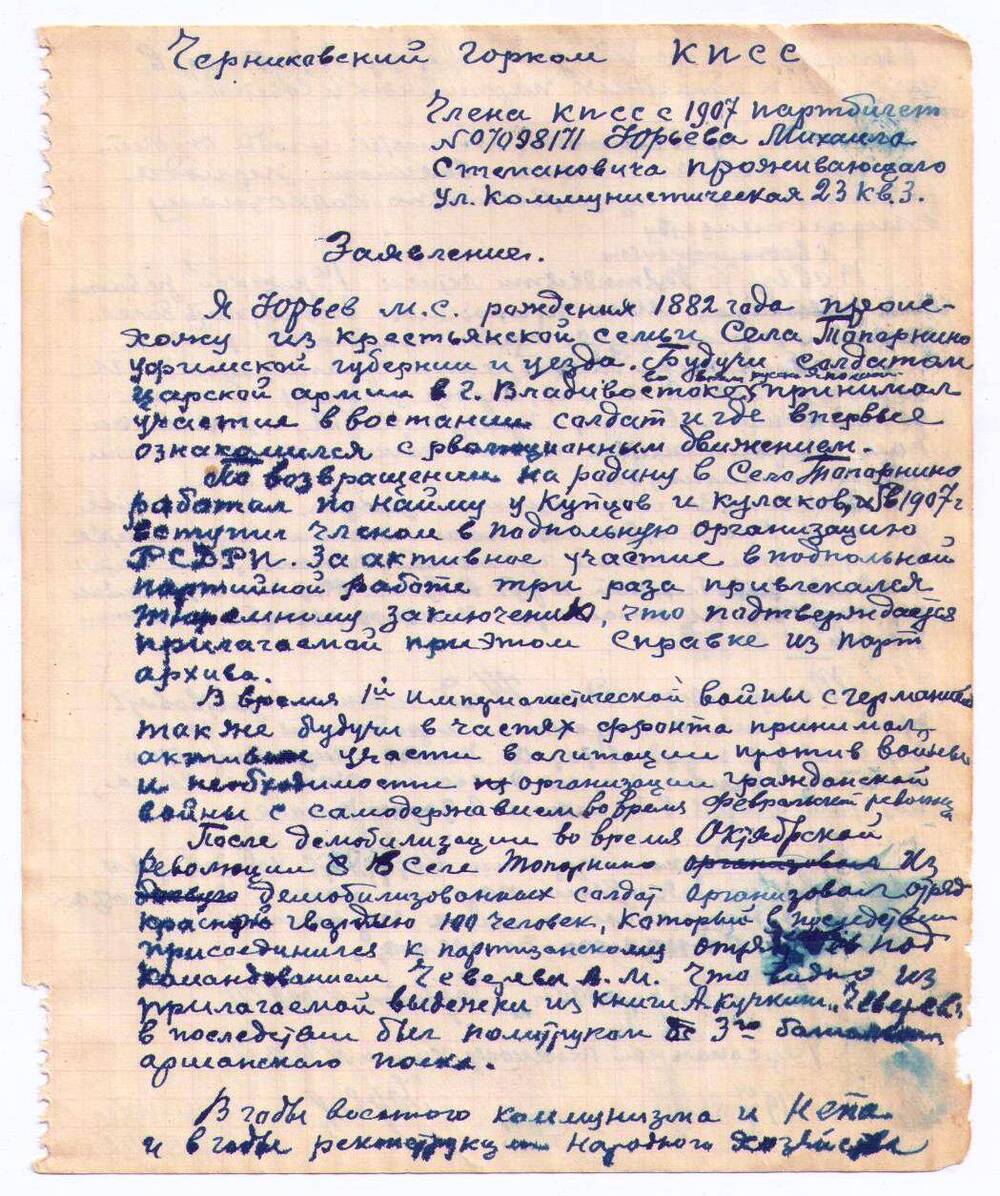 Черниковский горком КПСС
Члена КПСС с 1907 партбилет
№ 07098171 Юрьева Михаила
Степановича проживающаго
ул. Коммунистическая 23 кв. 3.
Заявление.
Я Юрьев М.С. рождения 1882 года проис-
хожу из крестьянской семьи Села Топорнино
Уфимской губернии и уезда. Будучи солдатом
царской армии в г. Владивостоке принимал
участие в востании солдат и где впервые
ознакомился с рволюционным движением.
По возвращении на родину в Село Топорнино
работал по найму у купцов и кулаков, и в 1907 г
вступил членом в подпольную организацию
РСДРП. За активное участие в подпольной
партийной работе три раза привлекался
тюремному заключению, что подтверждается
прилагаемой при этом справке из парт
архива.
В время 1й империалистической войны с германией
так же будучи в частях фронта принимал
активное участи в агитации против войны
и необходимости организации гражданской
войны с самодержавием во время Февральской революции
После демобилизации во время Октябрской
революции в Селе Топорнино организовал из
демобилизованных солдат организовал отряд
красную гвардию 100 человек, который в последствии
присоединился к партизанскому отряду под
командованием Чеверева А.М. что видно из
прилагаемой выдежки из книги А. Кучкин „Чеверев"
в последствии был политруком 3го батальона
арианского полка.
В годы военого коммунизма и Непа
и в годы реконструкции народного хозяйства